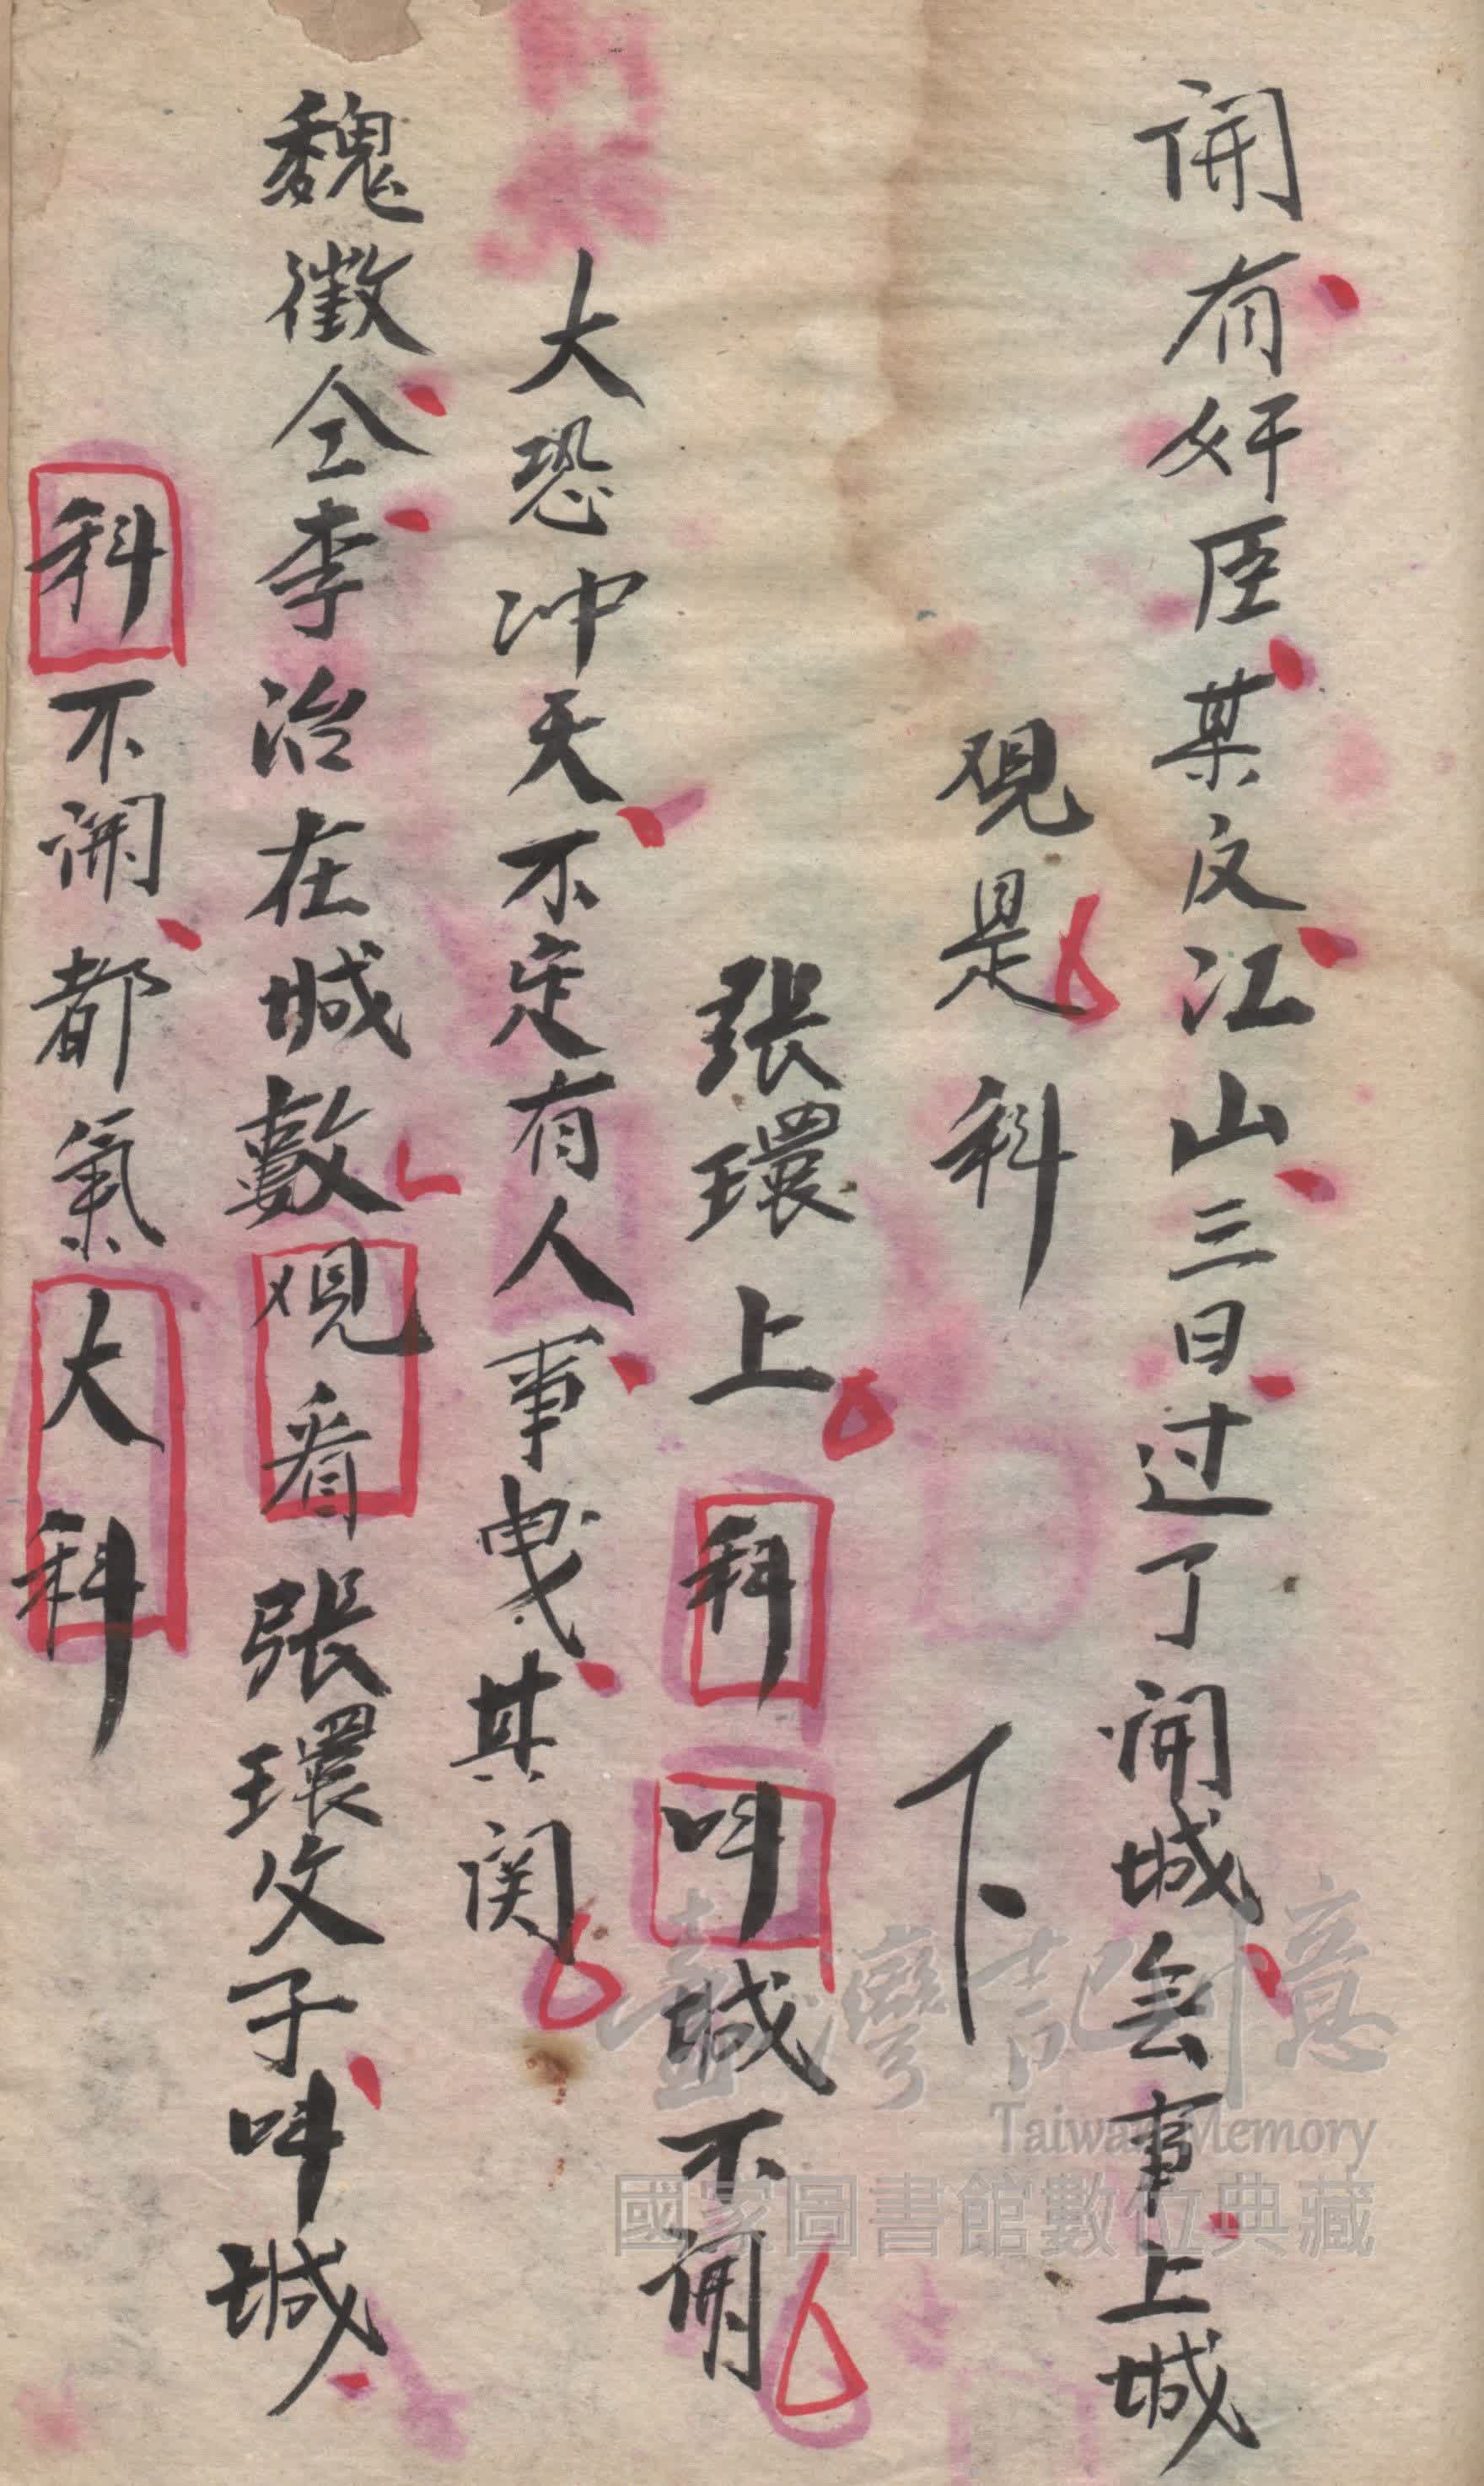 開有奸臣某反江山三日过了開城会事上城
观是科 下
張環上科叫城不開
大恐冲天不定有人事曳其関
魏徵仝李治在城敷观看張環父子叫城
科不開都氣大科
臺灣記憶
Taiwan Memory
國家圖書館數位典藏